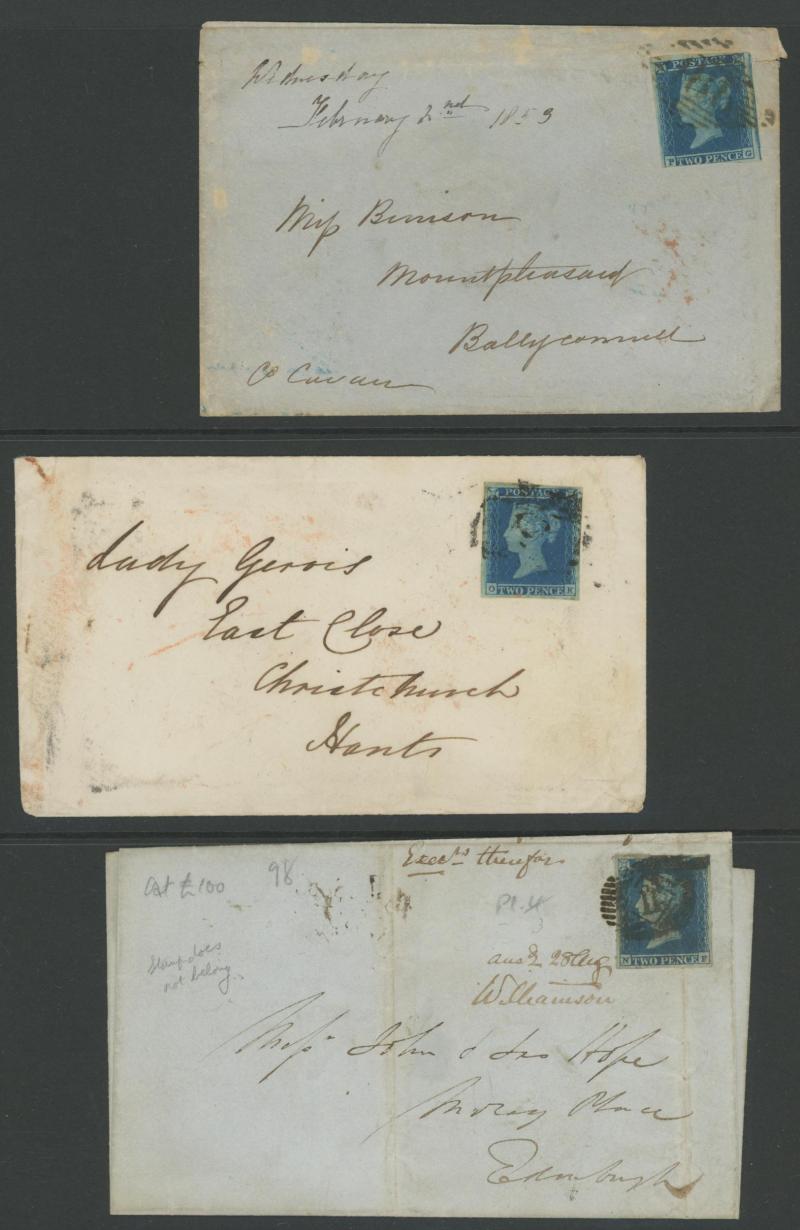 Wednesday
February 2nd 1853
POSTAGE
P TWO PENCE G
Miss Benison
Mountpleasant
Ballyconnell
Co Cavan
POSTAGE
O TWO PENCE K
Lady Gervis
East Close
Christchurch
Hants
therefor
Cat £100
98
Pl. 4
N TWO PENCE F
Stamp does
not belong
ansd 28 Aug
Williamson
Messrs John & Jas Hope
Moray Place
Edinburgh